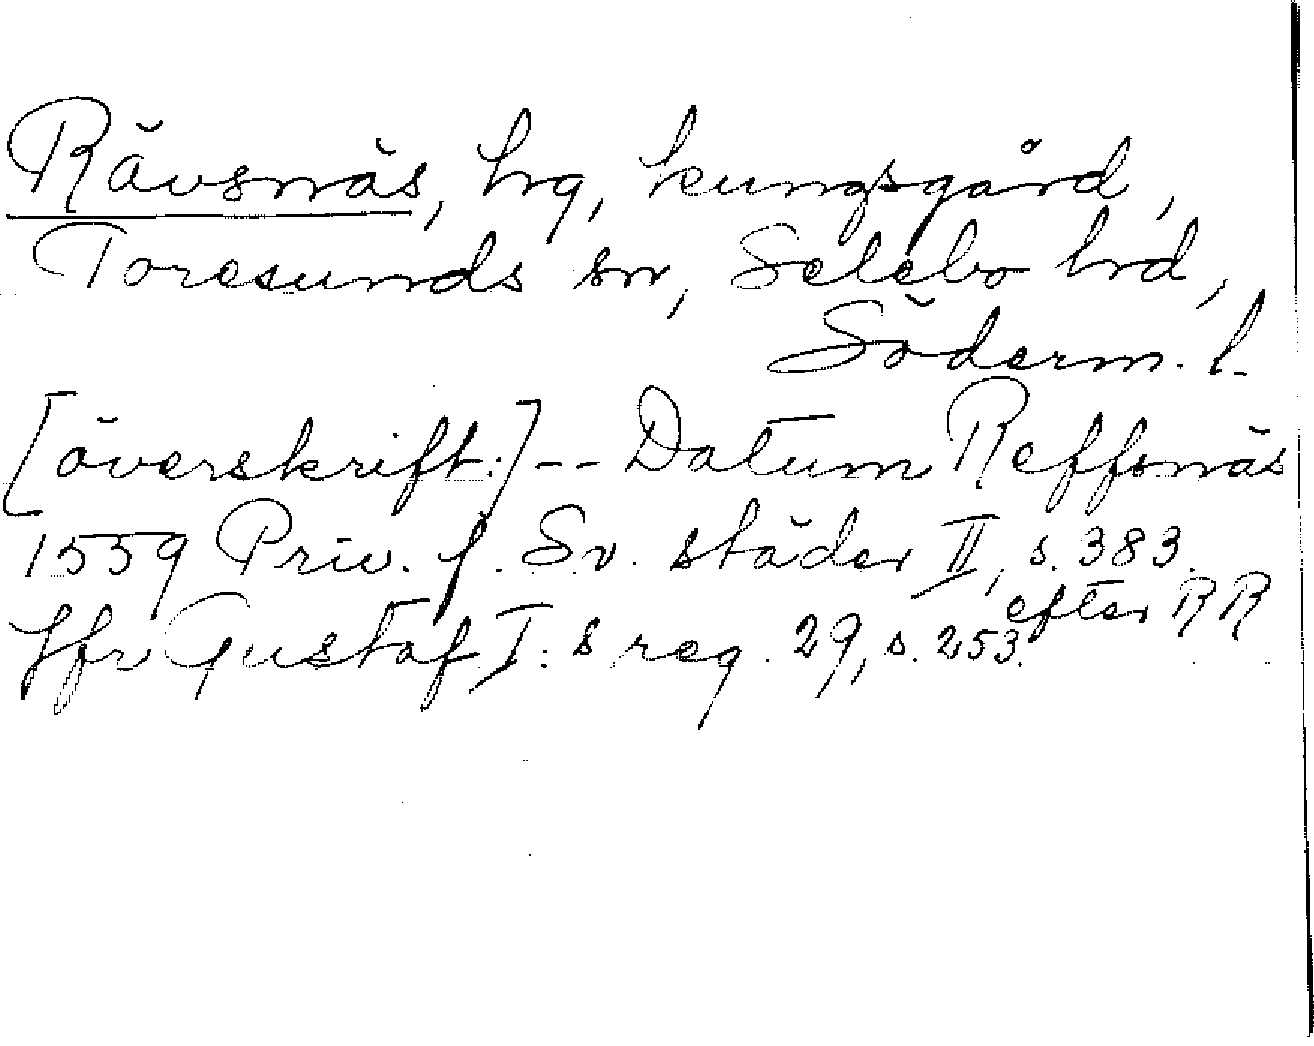 Rävsnäs, hrg, kungsgård,
Toresunds sn, Selebo hrd,
Söderm. l.
[överskrift:] -- Datum Reffsnäs
1559 Priv. f. Sv. städer II, s. 383.
efter RR
Jfr Gustaf I:s reg. 29, s. 253.